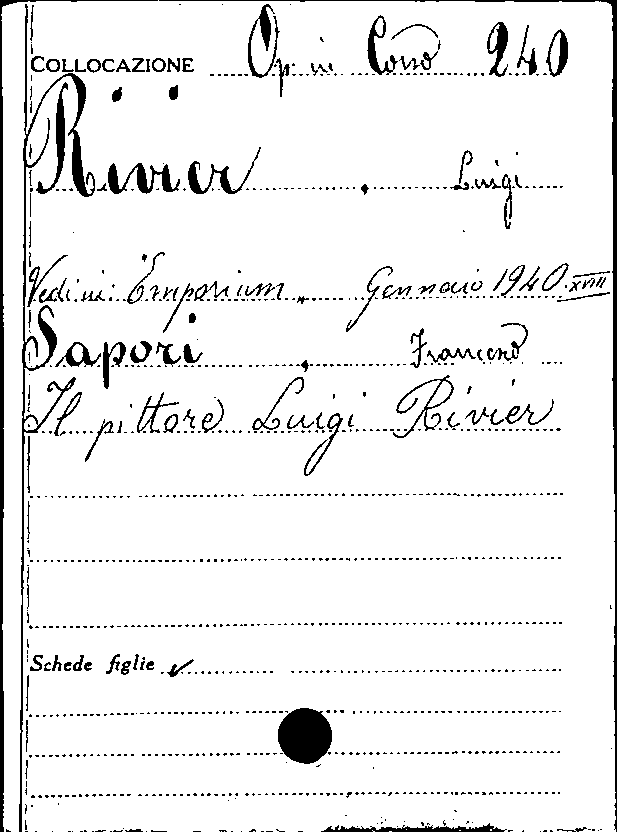 COLLOCAZIONE Op in Corso 240
Rivier , Luigi
Vedi in: "Emporium" Gennaio 1940 XVIII
Sapori , Francesco
Il pittore Luigi Rivier
Schede figlie ✓